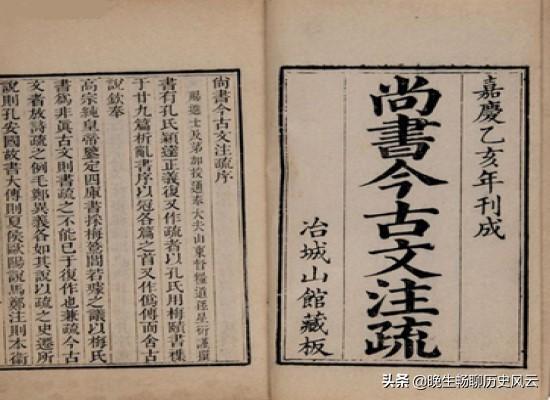 嘉慶乙亥年刊成
尚書今古文注疏
冶城山館藏板
尙書今古文注疏序
賜進士及第部授通奉大夫山東督糧道孫星衍謹撰
書有孔氏穎達正義復又作疏者以孔氏用梅賾書襍
于廿九篇析亂書序以冠各篇之首又作僞傳而舍古
說欽奉
高宗純皇帝鑒定四庫書採梅鷟閻若璩之議以梅氏
書爲非眞古文則書疏之不能已于復作也兼疏今古
文者放詩疏之例毛鄭異義各如其說以疏之史遷所
說則孔安國故書大傳則夏侯歐陽說馬鄭注則本衞
头条 @晚生畅聊历史风云